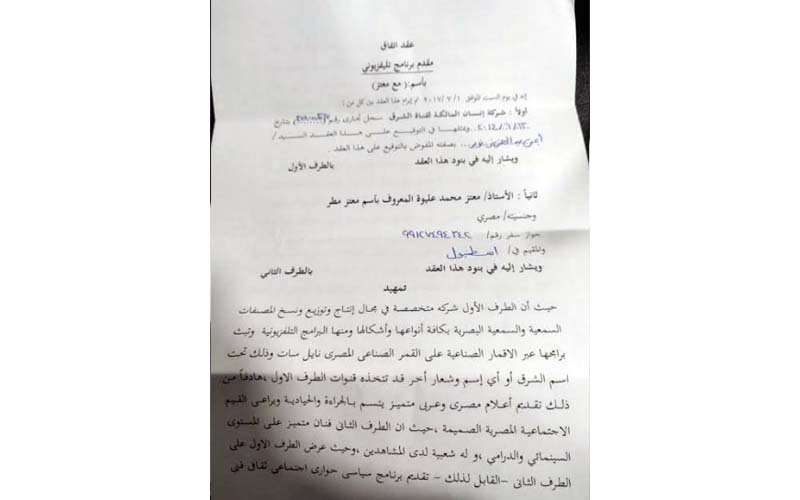 عقد اتفاق
مقدم برنامج تليفزيوني
بأسم: ( مع معتز)
إنه في يوم السبت الموافق ٢٠١٧/٧/١ م إبرام هذا العقد بين كل من:
اولاً : شركة إنسان المالكة لقناة الشرق سجل تجارى رقم بتاريخ
ويمثلها في التوقيع على هذا العقد السيد/
بصفته المفوض بالتوقيع على هذا العقد .
ويشار إليه في بنود هذا العقد بالطرف الأول
ثانياً : الأستاذ/ معتز محمد عليوة المعروف بأسم معتز مطر
وجنسيته/ مصري
جواز سفر رقم/
والمقيم في/ اسطنبول
ويشار إليه في بنود هذا العقد بالطرف الثاني
تمهيد
حيث أن الطرف الأول شركه متخصصة في مجال إنتاج وتوزيع ونسخ المصنفات
السمعية والسمعية البصرية بكافة أنواعها وأشكالها ومنها البرامج التلفزيونية وتبث
برامجها عبر الاقمار الصناعية على القمر الصناعى المصرى نايل سات وذلك تحت
اسم الشرق أو أي إسم وشعار أخر قد تتخذه قنوات الطرف الاول ،هادفاً من
ذلك تقديم أعلام مصرى وعربى متميز يتسم بالجراءة والحيادية ويراعى القيم
الاجتماعية المصرية الصميمة ،حيث ان الطرف الثانى فنان متميز على المستوى
السينمائي والدرامي ،و له شعبية لدى المشاهدين ،وحيث عرض الطرف الاول على
الطرف الثانى –القابل لذلك – تقديم برنامج سياسى حوارى اجتماعى ثقافى فنى